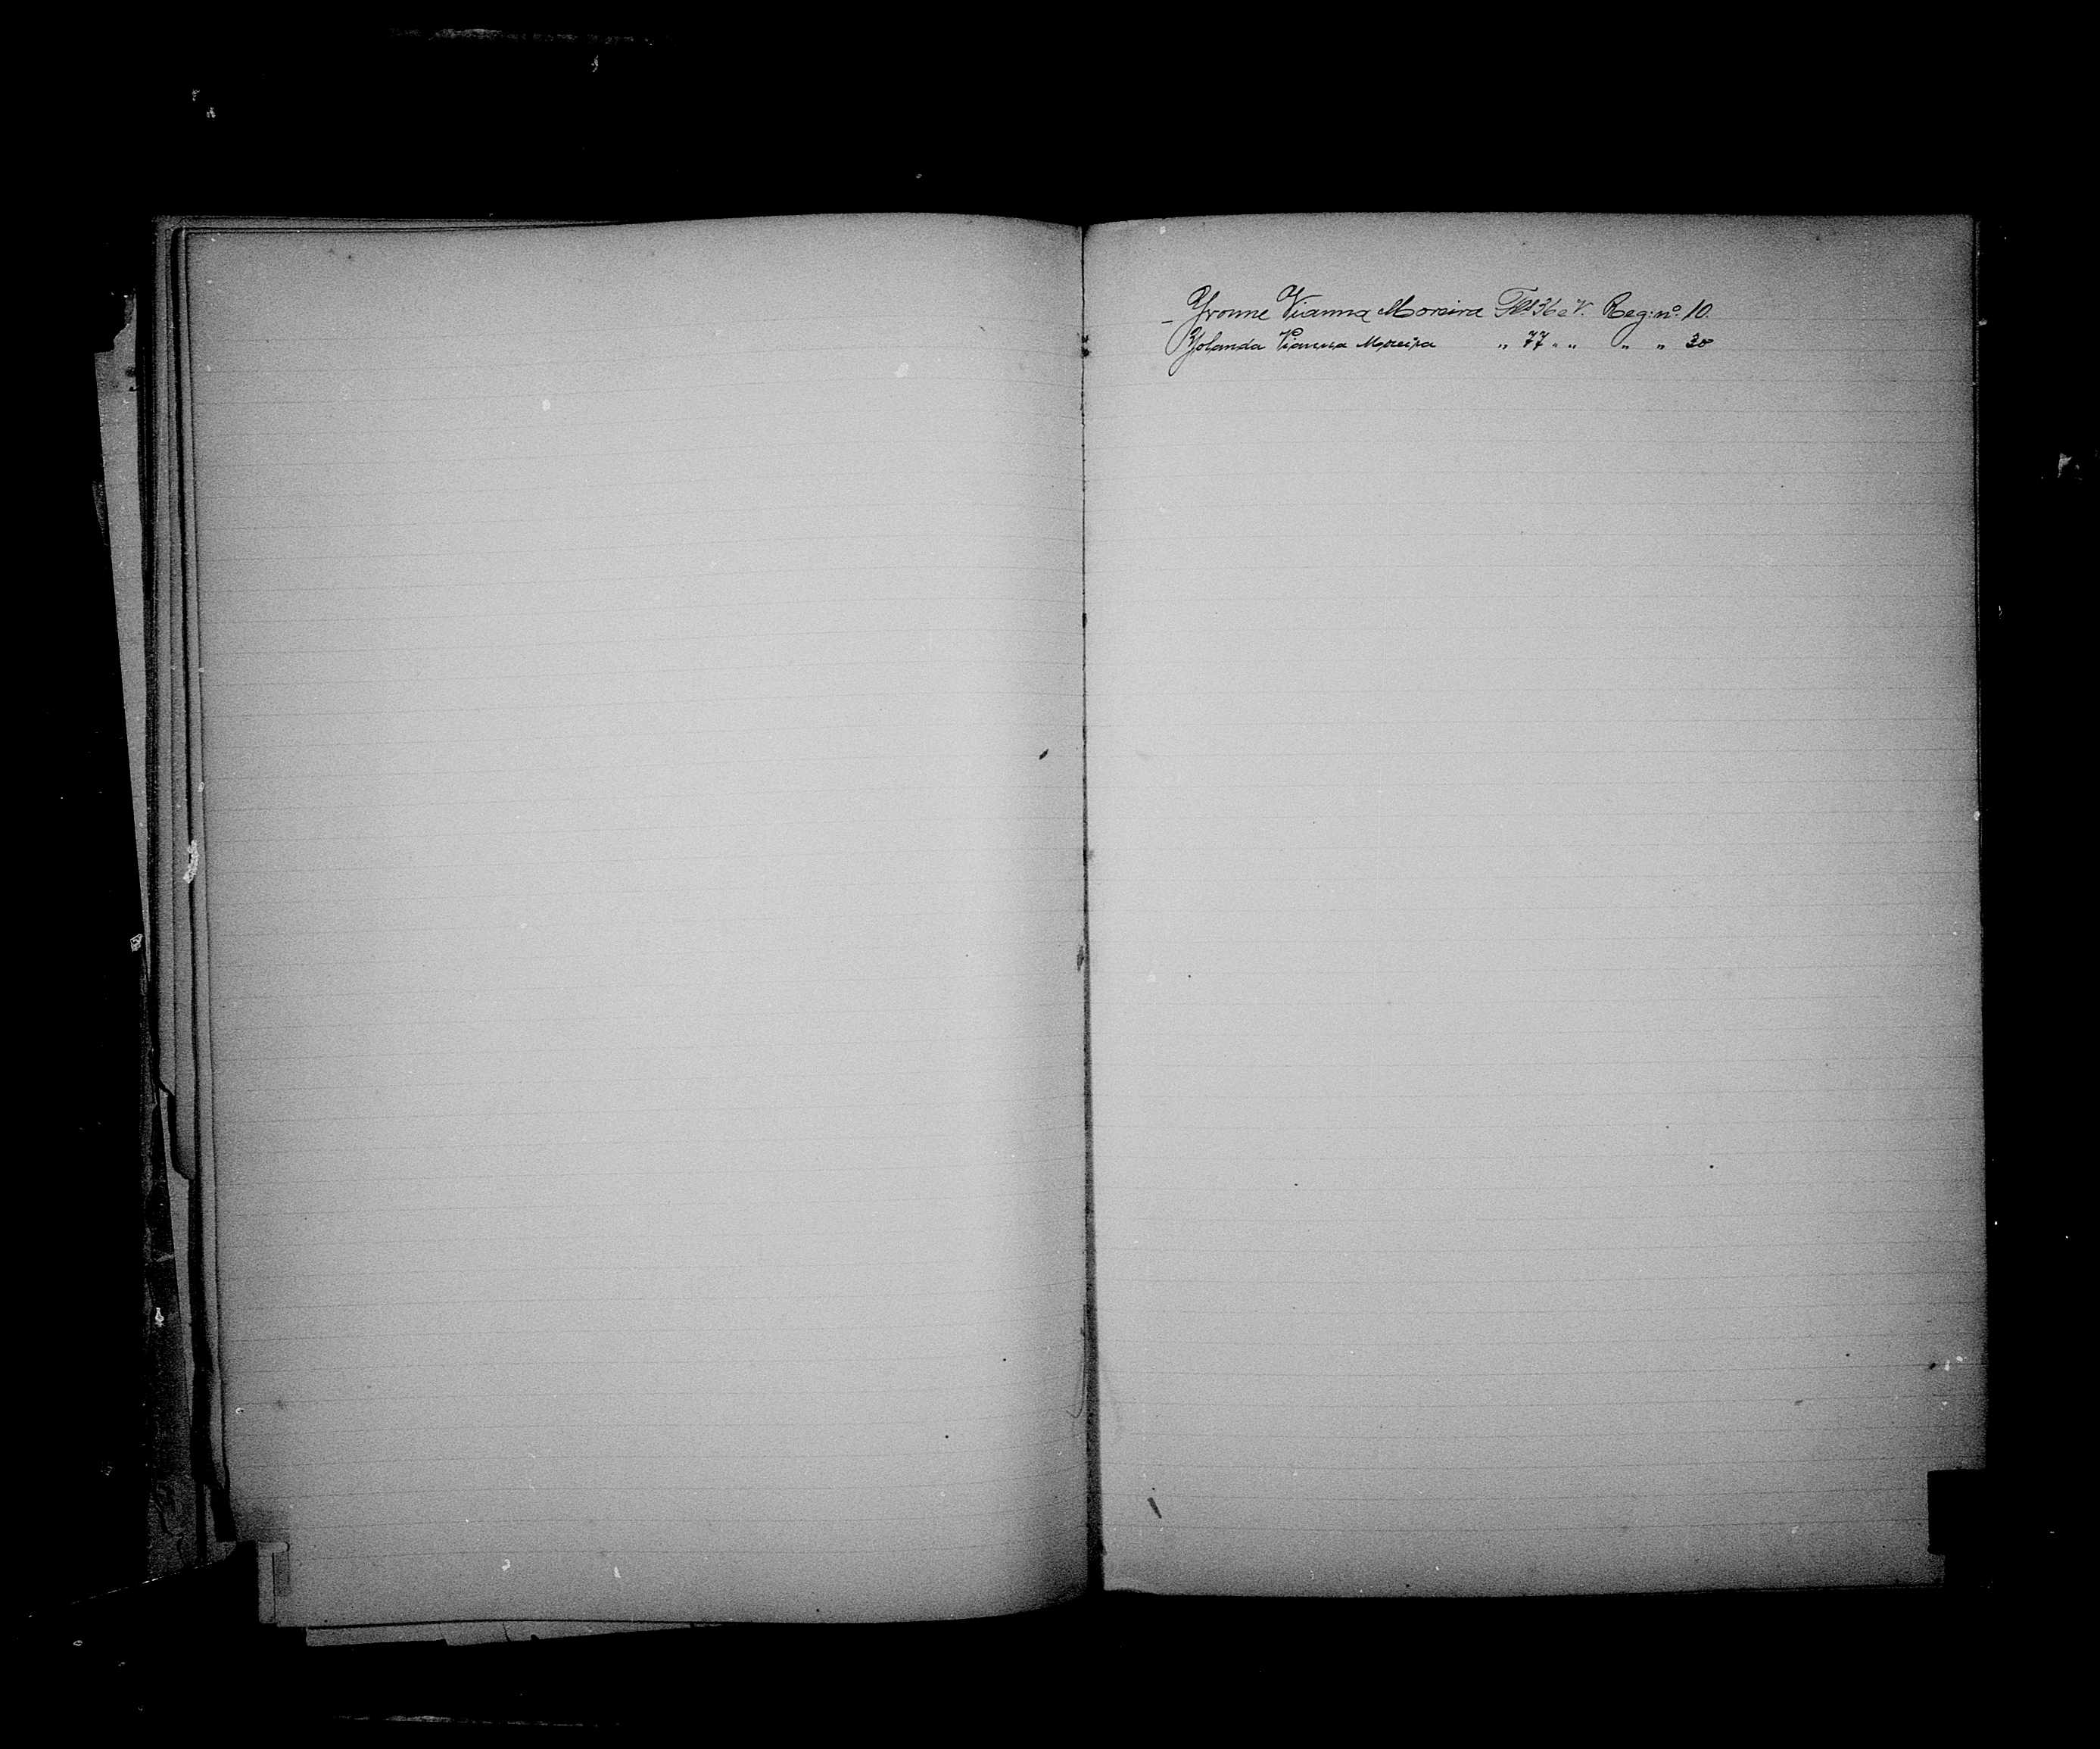 - Yvonne Vianna Moreira Fls 36 e V. Reg: nº 10.
Yolanda Vianna Moreira " 77 " " " " 30